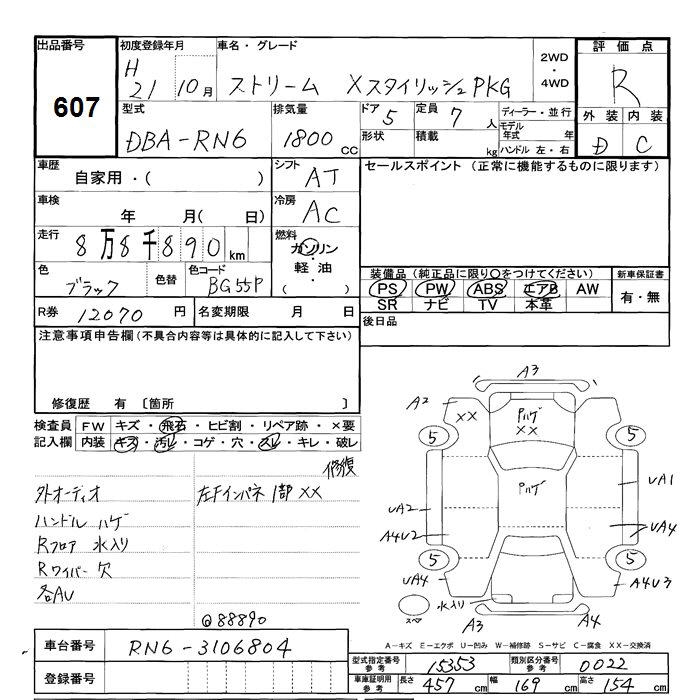 出品番号 初度登録年月 車名・グレード 2WD ・ 4WD 評価点
607
H 21 10月 ストリーム XスタイリッシュPKG
R
型式 排気量 ドア 5 定員 7 人 ディーラー・並行 外装 内装
DBA-RN6 1800 cc 形状 積載 kg モデル年式 年 D C
ハンドル 左・右
車歴 シフト セールスポイント (正常に機能するものに限ります)
自家用・( ) AT
車検 冷房
年 月( 日) AC
走行 燃料
8万8千890km ガソリン・軽油・( )
色 ブラック 色替 色コード BG55P
装備品 (純正品に限り○をつけてください) 新車保証書
PS PW ABS エアB AW 有・無
SR ナビ TV 本革
R券 12070 円 名変期限 月 日 後日品
注意事項申告欄(不具合内容等は具体的に記入して下さい)
修復歴 有 〔箇所 〕
検査員 FW キズ・飛石・ヒビ割・リペア跡・×要
記入欄 内装 キズ・汚レ・コゲ・穴・スレ・キレ・破レ
修復
外オーディオ 左Fインパネ 1部 XX
ハンドル ハゲ
Rフロア 水入り
Rワイパー欠
各AU
@88890
A3
A2 XX Pハゲ XX
5 5
Pハゲ UA1
UA2
A4U2 UA4
5 5
UA4 A4U3
スペア 水入り
A3 A4
A-キズ E-エクボ U-凹み W-補修跡 S-サビ C-腐食 XX-交換済
車台番号 RN6-3106804
登録番号
型式指定番号 参考 15353 類別区分番号 参考 0022
車庫証明用 参考 長さ 457 cm 幅 169 cm 高さ 154 cm